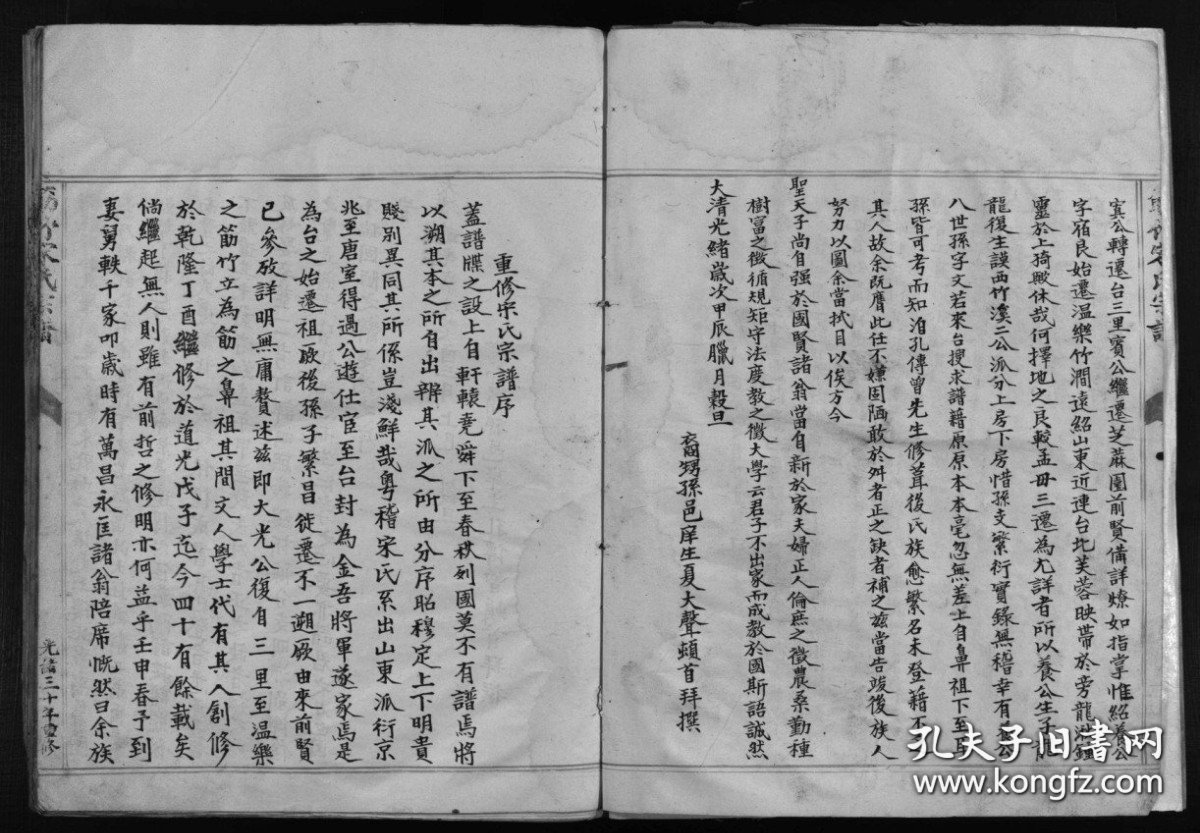 賔公轉遷台三里賔公繼遷芝蔴園前賢備詳燎如指掌惟紹養公
字宿良始遷温樂竹澗遠紹山東近連台北芙蓉映帶於旁龍湫鍾
靈於上猗歟休哉何擇地之良較孟毋三遷為尤詳者所以養公生子龍
龍復生謨西竹溪二公派分上房下房惜孫支繁衍實錄無稽幸有
八世孫字文若來台搜求譜藉原原本本毫忽無差上自鼻祖下至耳
孫皆可考而知洎孔傳曾先生修葺後氏族愈繁名未登藉不
其人故余既膺此任不嫌固陋敢於舛者正之缺者補之兹當告竣後族人
努力以圖余當拭目以俟方今
聖天子尚自强於國賢諸翁當自新於家夫婦正人倫庶之徵農桑勤種
樹富之徵循規矩守法度教之徵大學云君子不出家而成教於國斯語誠然
大清光緒歲次甲辰臘月穀旦
裔甥孫邑庠生夏大聲頓首拜撰
重修宋氏宗譜序
蓋譜牒之設上自軒轅堯舜下至春秋列國莫不有譜焉將
以溯其本之所自出辨其派之所由分序昭穆定上下明貴
賤別異同其所係豈淺鮮哉粤稽宋氏系出山東派衍京
兆至唐室得遇公遊仕宦至台封為金吾將軍遂家焉是
為台之始遷祖厥後孫子繁昌徙遷不一遡厥由來前賢
已參攷詳明無庸贅述兹即大光公復自三里至温樂
之筋竹立為筋之鼻祖其間文人學士代有其人創修
於乾隆丁酉繼修於道光戊子迄今四十有餘載矣
倘繼起無人則雖有前哲之修明亦何益乎壬申春予到
妻舅軼千家叩歲時有萬昌永匡諸翁陪席慨然曰余族
光緒三十年重修
孔夫子旧書网
www.kongfz.com